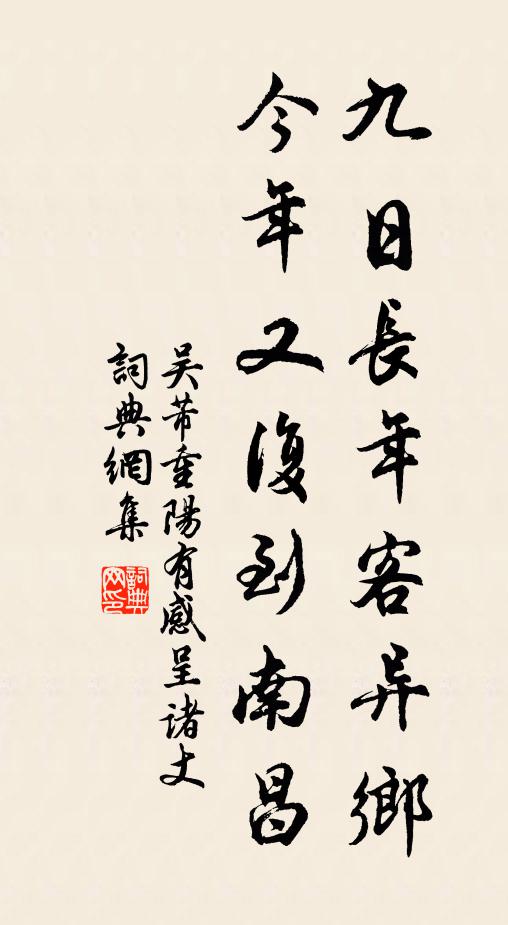 九日長年客异鄉
今年又復到南昌
吴芾重陽有感呈诸丈
詞典網集
詞典网印